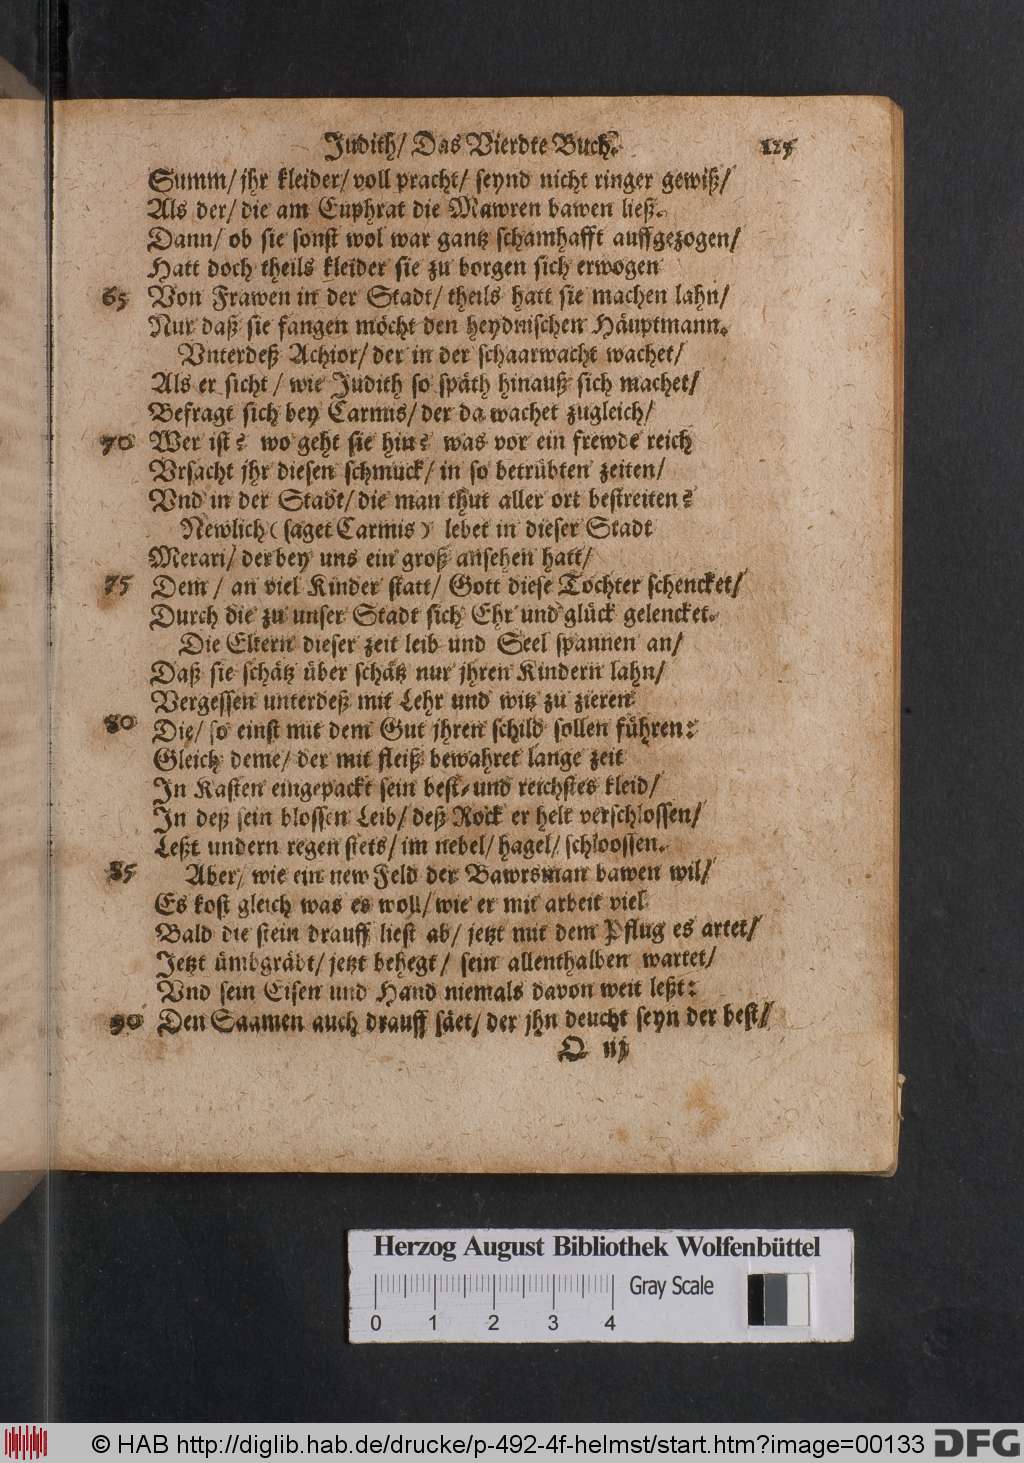 Judith/ Das Vierdte Buch. 125
Summ/ jhr kleider/ voll pracht/ seynd nicht ringer gewiß/
Als der/ die am Euphrat die Mawren bawen ließ.
Dann/ ob sie sonst wol war gantz schamhafft auffgezogen/
Hatt doch theils kleider sie zu borgen sich erwogen
65 Von Frawen in der Stadt/ theils hatt sie machen lahn/
Nur daß sie fangen möcht den heydnischen Häuptmann.
Vnterdeß Achior/ der in der schaarwacht wachet/
Als er sicht/ wie Judith so späth hinauß sich machet/
Befragt sich bey Carmis/ der da wachet zugleich/
70 Wer ist? wo geht sie hin? was vor ein frewde reich
Vrsacht jhr diesen schmuck/ in so betrübten zeiten/
Vnd in der Stadt/ die man thut aller ort bestreiten?
Newlich (saget Carmis) lebet in dieser Stadt
Merari/ der bey uns ein groß ansehen hatt/
75 Dem/ an viel Kinder statt/ Gott diese Tochter schencket/
Durch die zu unser Stadt sich Ehr und glück gelencket.
Die Eltern dieser zeit leib und Seel spannen an/
Daß sie schätz über schätz nur jhren Kindern lahn/
Vergessen unterdeß mit Lehr und witz zu zieren
80 Die/ so einst mit dem Gut jhren schild sollen führen:
Gleich deme/ der mit fleiß bewahret lange zeit
In Kasten eingepackt sein best- und reichstes kleid/
In deß sein blossen Leib/ deß Rock er helt verschlossen/
Leßt undern regen stets/ im nebel/ hagel/ schloossen.
85 Aber/ wie ein new Feld der Bawrsman bawen wil/
Es kost gleich was es woll/ wie er mit arbeit viel
Bald die stein drauff liest ab/ jetzt mit dem Pflug es artet/
Jetzt ümbgräbt/ jetzt behegt/ sein allenthalben wartet/
Vnd sein Eisen und Hand niemals davon weit leßt:
90 Den Saamen auch drauff säet/ der jhn deucht seyn der best/
Q iij
Herzog August Bibliothek Wolfenbüttel
Gray Scale
0 1 2 3 4
© HAB http://diglib.hab.de/drucke/p-492-4f-helmst/start.htm?image=00133 DFG